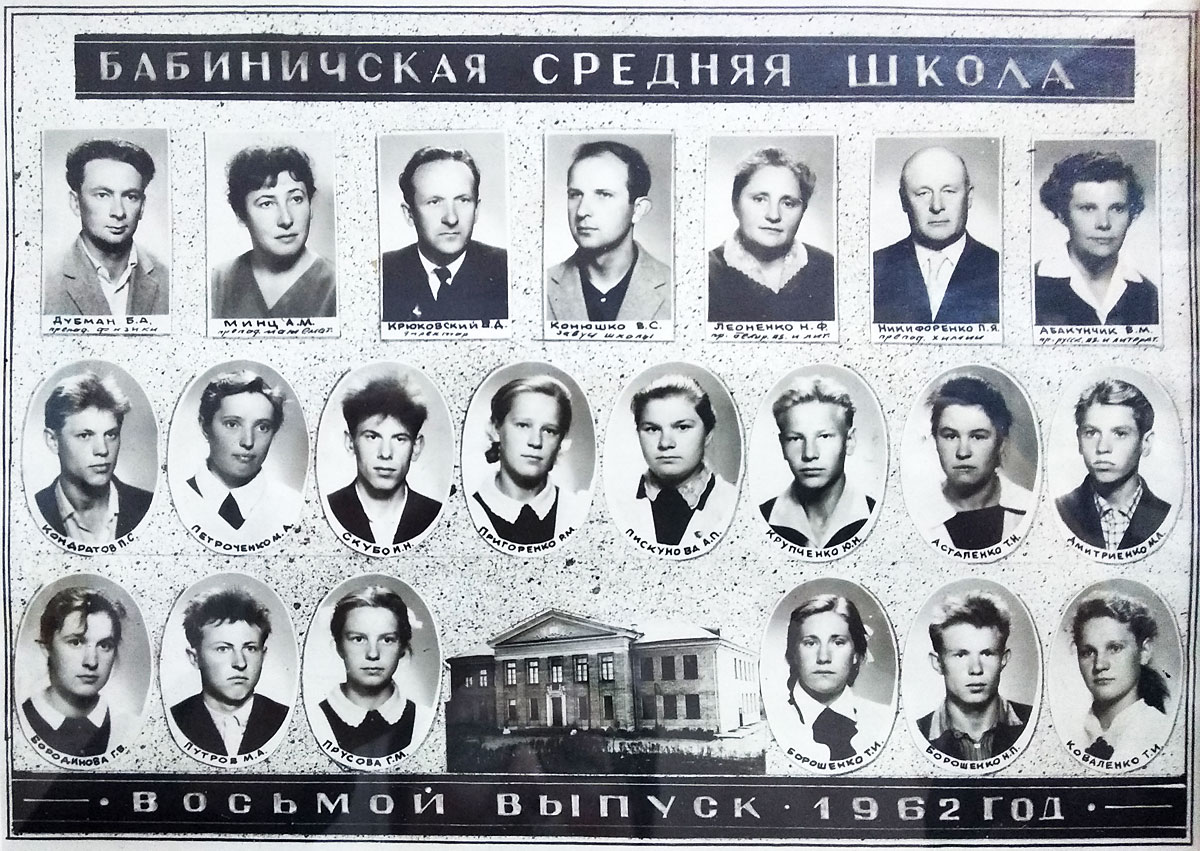 БАБИНИЧСКАЯ СРЕДНЯЯ ШКОЛА
ДУБМАН Б.А.
препод. физики
МИНЦ А.М.
препод. математ.
КРЮКОВСКИЙ В.Д.
директор
КОНЮШКО В.С.
завуч школы
ЛЕОНЕНКО Н.Ф.
пр. белор. яз. и лит.
НИКИФОРЕНКО П.Я.
препод. химии
АБАКУНЧИК В.М.
пр. русск. яз. и литерат.
КОНДРАТОВ П.С.
ПЕТРОЧЕНКО М.А.
СКУБО И.Н.
ПРИГОРЕНКО Р.М.
ПИСКУНОВА А.П.
КРУПЧЕНКО Ю.Н.
АСТАПЕНКО Т.Н.
ДМИТРИЕНКО М.Л.
БОРОДИНОВА Г.В.
ПУТРОВ М.А.
ПРУСОВА Г.М.
БОРОШЕНКО Т.И.
БОРОШЕНКО Н.П.
КОВАЛЕНКО Т.И.
ВОСЬМОЙ ВЫПУСК · 1962 ГОД